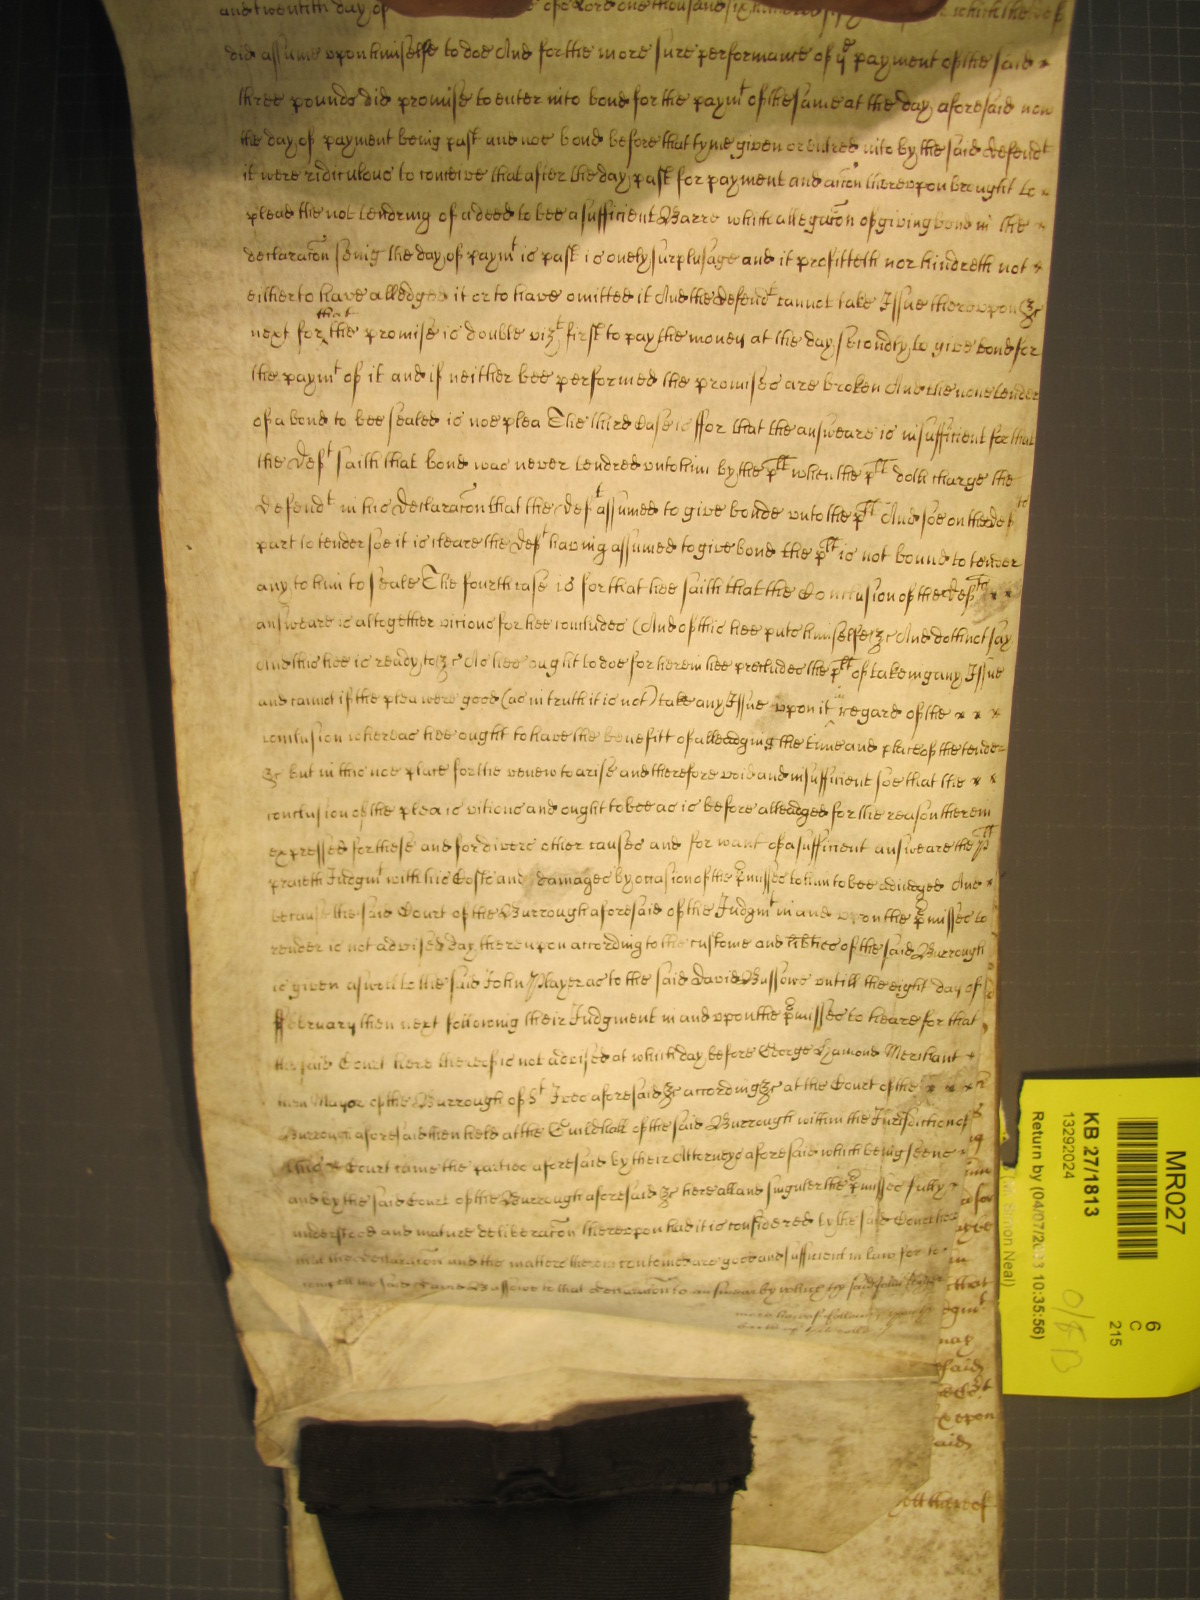 and twentith day of of o Lord one thousand six hundred fifty which the def
did assume upon himselfe to doe And for the more sure performance of ye payment of the said
three pounds did promise to enter into bond for the paymt of the same at the day aforesaid now
the day of payment being past and noe bond before that tyme given or entred into by the said defendt
it were ridiculous to conceive that after the day past for payment and accon thereupon brought to
plead the not tendring of a deed to bee a sufficient Barre which allegacon of giving bond in the
declaracon seing the day of paymt is past is onely surplusage and it profitteth nor hindreth not
either to have alledged it or to have omitted it And the defendt cannot take Issue thereupon &c
next for that the promise is double vizt first to pay the money at the day secondly to give bond for
the paymt of it and if neither bee performed the promises are broken And the none tender
of a bond to bee sealed is noe plea The third Case is ffor that the answeare is insufficient for that
the Deft saith that bond was never tendred unto him by the pltt when the pltt doth charge the
Defendt in his Declaracon that the Deft assumed to give bonde unto the pltt And soe on the defts
part to tender soe it is cleare the Deft having assumed to give bond the pltt is not bound to tender
any to him to seale The fourth case is for that hee saith that the Conclusion of the Defts
answeare is altogether vicious for hee concludes (And of this hee puts himselfe &c And doth not say
And this hee is ready to &c As hee ought to doe for herein hee precludes the pltt of takeing any Issue
and cannot if the plea were good (as in truth it is not) take any Issue upon it in regard of the
conclusion whereas hee ought to have the benefitt of alleadging the time and place of the tender
&c but in this noe place for the venew to arise and therefore void and insufficient soe that the
conclusion of the plea is vitious and ought to bee as is before alleadged for the reason therein
expressed for these and for divers other causes and for want of a sufficient answeare the pltt
praieth Judgmt with his Costs and damages by occasion of the pmisses to him to bee adiudged And
because the said Court of the Burrough aforesaid of the Judgmt in and upon the pmisses to
render is not advised day thereupon according to the custome and libties of the said Burrough
is given aswell to the said John Player as to the said David Bussowe untill the eight day of
ffebruary then next following their Judgment in and upon the pmisses to heare for that
the said Court here thereof is not advised at which day before George Hamond Merchant
then Mayor of the Burrough of St Ives aforesaid &c according &c at the Court of the
Burrough aforesaid then held at the Guildhall of the said Burrough within the Jurisdiction of
this Court came the parties aforesaid by their Attorneys aforesaid which being seene
and by the said Court of the Burrough aforesaid &c here all and singuler the pmisses fully
understood and mature deliberacon thereupon had it is considered by the said Court here
that the Declaracon and the matters therein conteined are good and sufficient in law for to
compell the said David Bussowe to that declaracon to answeare by which the said John Player
that
may
said
upon
said
thereof
MR027
6
C
215
KB 27/1813
13292024
Return by (04/07/2023 10:35:56)
Simon Neal)